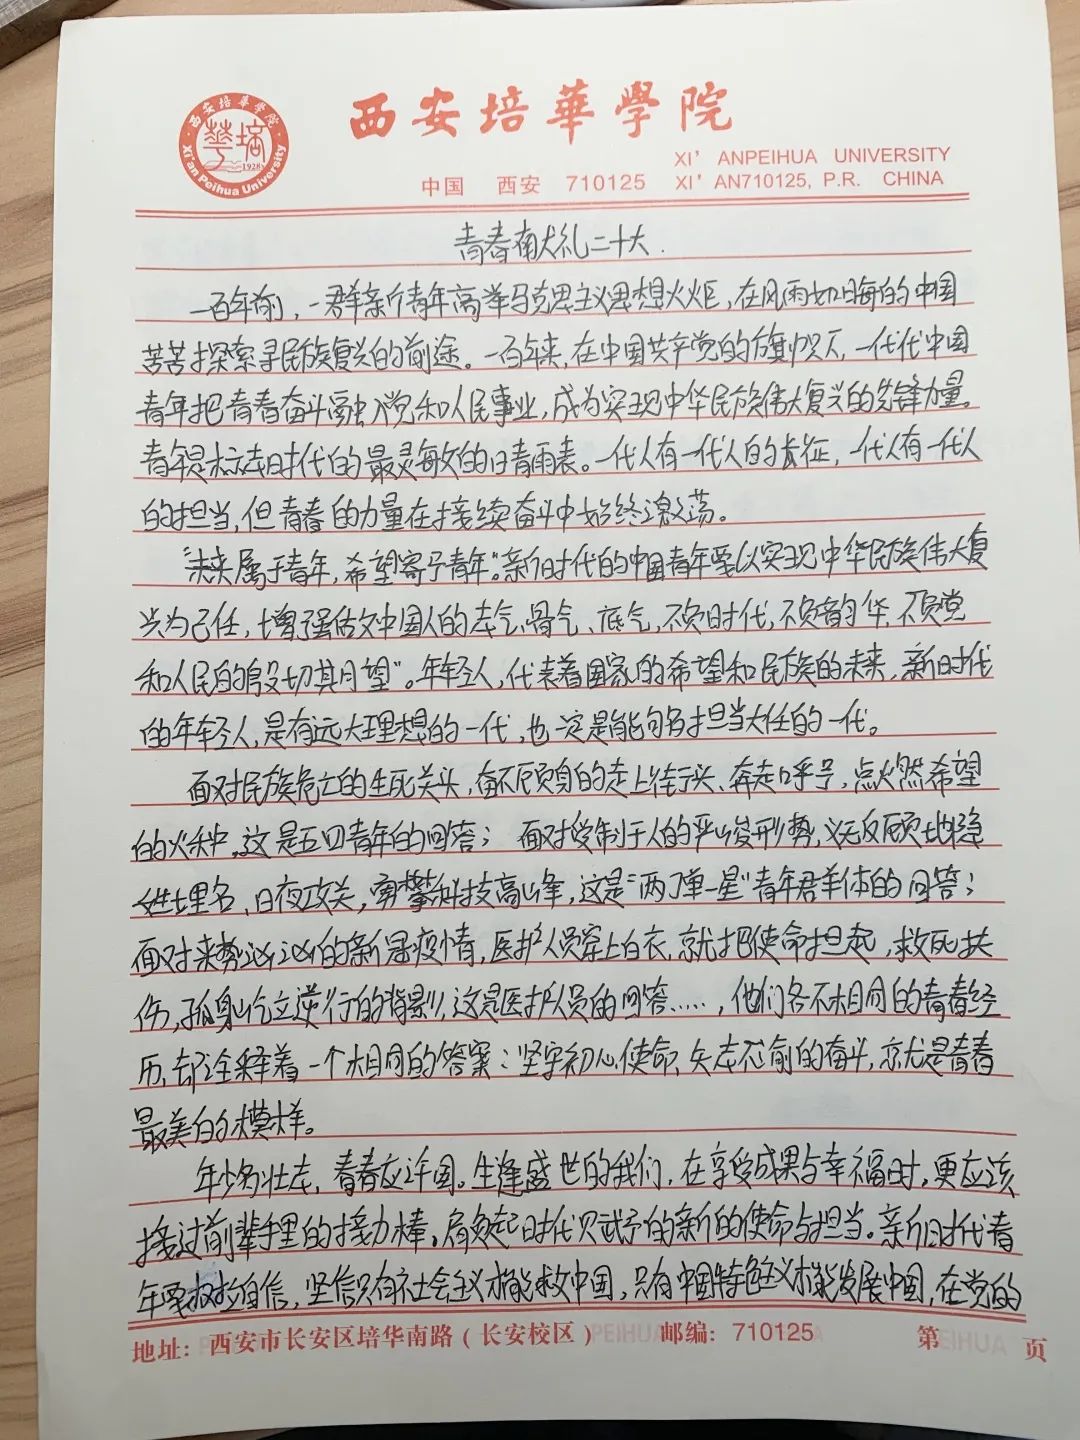 西安培華學院
西安培華學院
華培
1928
Xi'an Peihua University
XI' ANPEIHUA UNIVERSITY
中国 西安 710125 XI' AN710125, P.R. CHINA
青春献礼二十大.
一百年前，一群新青年高举马克思主义思想火炬，在风雨如晦的中国
苦苦探索寻民族复兴的前途。一百年来，在中国共产党的旗帜下，一代代中国
青年把青春奋斗融入党和人民事业，成为实现中华民族伟大复兴的先锋力量。
青年是标志时代的最灵敏的晴雨表。一代人有一代人的长征，一代人有一代人
的担当，但青春的力量在接续奋斗中始终激荡。
“未来属于青年，希望寄予青年”。新时代的中国青年要以实现中华民族伟大复
兴为己任，增强做中国人的志气、骨气、底气，不负时代，不负韶华，不负党
和人民的殷切期望”。年轻人，代表着国家的希望和民族的未来，新时代
的年轻人，是有远大理想的一代，也一定是能够担当大任的一代。
面对民族危亡的生死关头，奋不顾身的走上街头、奔走呼号，点燃希望
的火种，这是五四青年的回答；面对受制于人的严峻形势，义无反顾地隐
姓埋名、日夜攻关，勇攀科技高峰，这是“两弹一星”青年群体的回答；
面对来势汹汹的新冠疫情，医护人员穿上白衣，就把使命担起，救死扶
伤，孤身屹立逆行的背影，这是医护人员的回答……，他们各不相同的青春经
历，却诠释着一个相同的答案：坚守初心使命、矢志不渝的奋斗，就是青春
最美的模样。
年少多壮志，青春应许国。生逢盛世的我们，在享受成果与幸福时，更应该
接过前辈手里的接力棒，肩负起时代赋予的新的使命与担当。新时代青
年要树立自信，坚信只有社会主义才能救中国，只有中国特色主义才能发展中国，在党的
地址：西安市长安区培华南路（长安校区） 邮编：710125 第 页